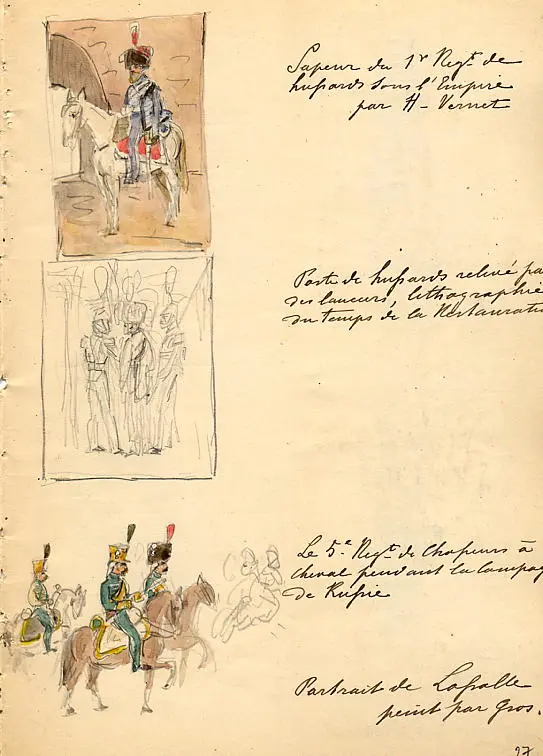 Sapeur du 1r Regt. de
hussards sous l'Empire
par H - Vernet
Poste de hussards relevé pa
des lanciers, lithographie
du temps de la Restaurati
Le 5e Regt. de Chasseurs à
cheval pendant la Campag
de Russie
Portrait de Lasalle
peint par Gros.
97